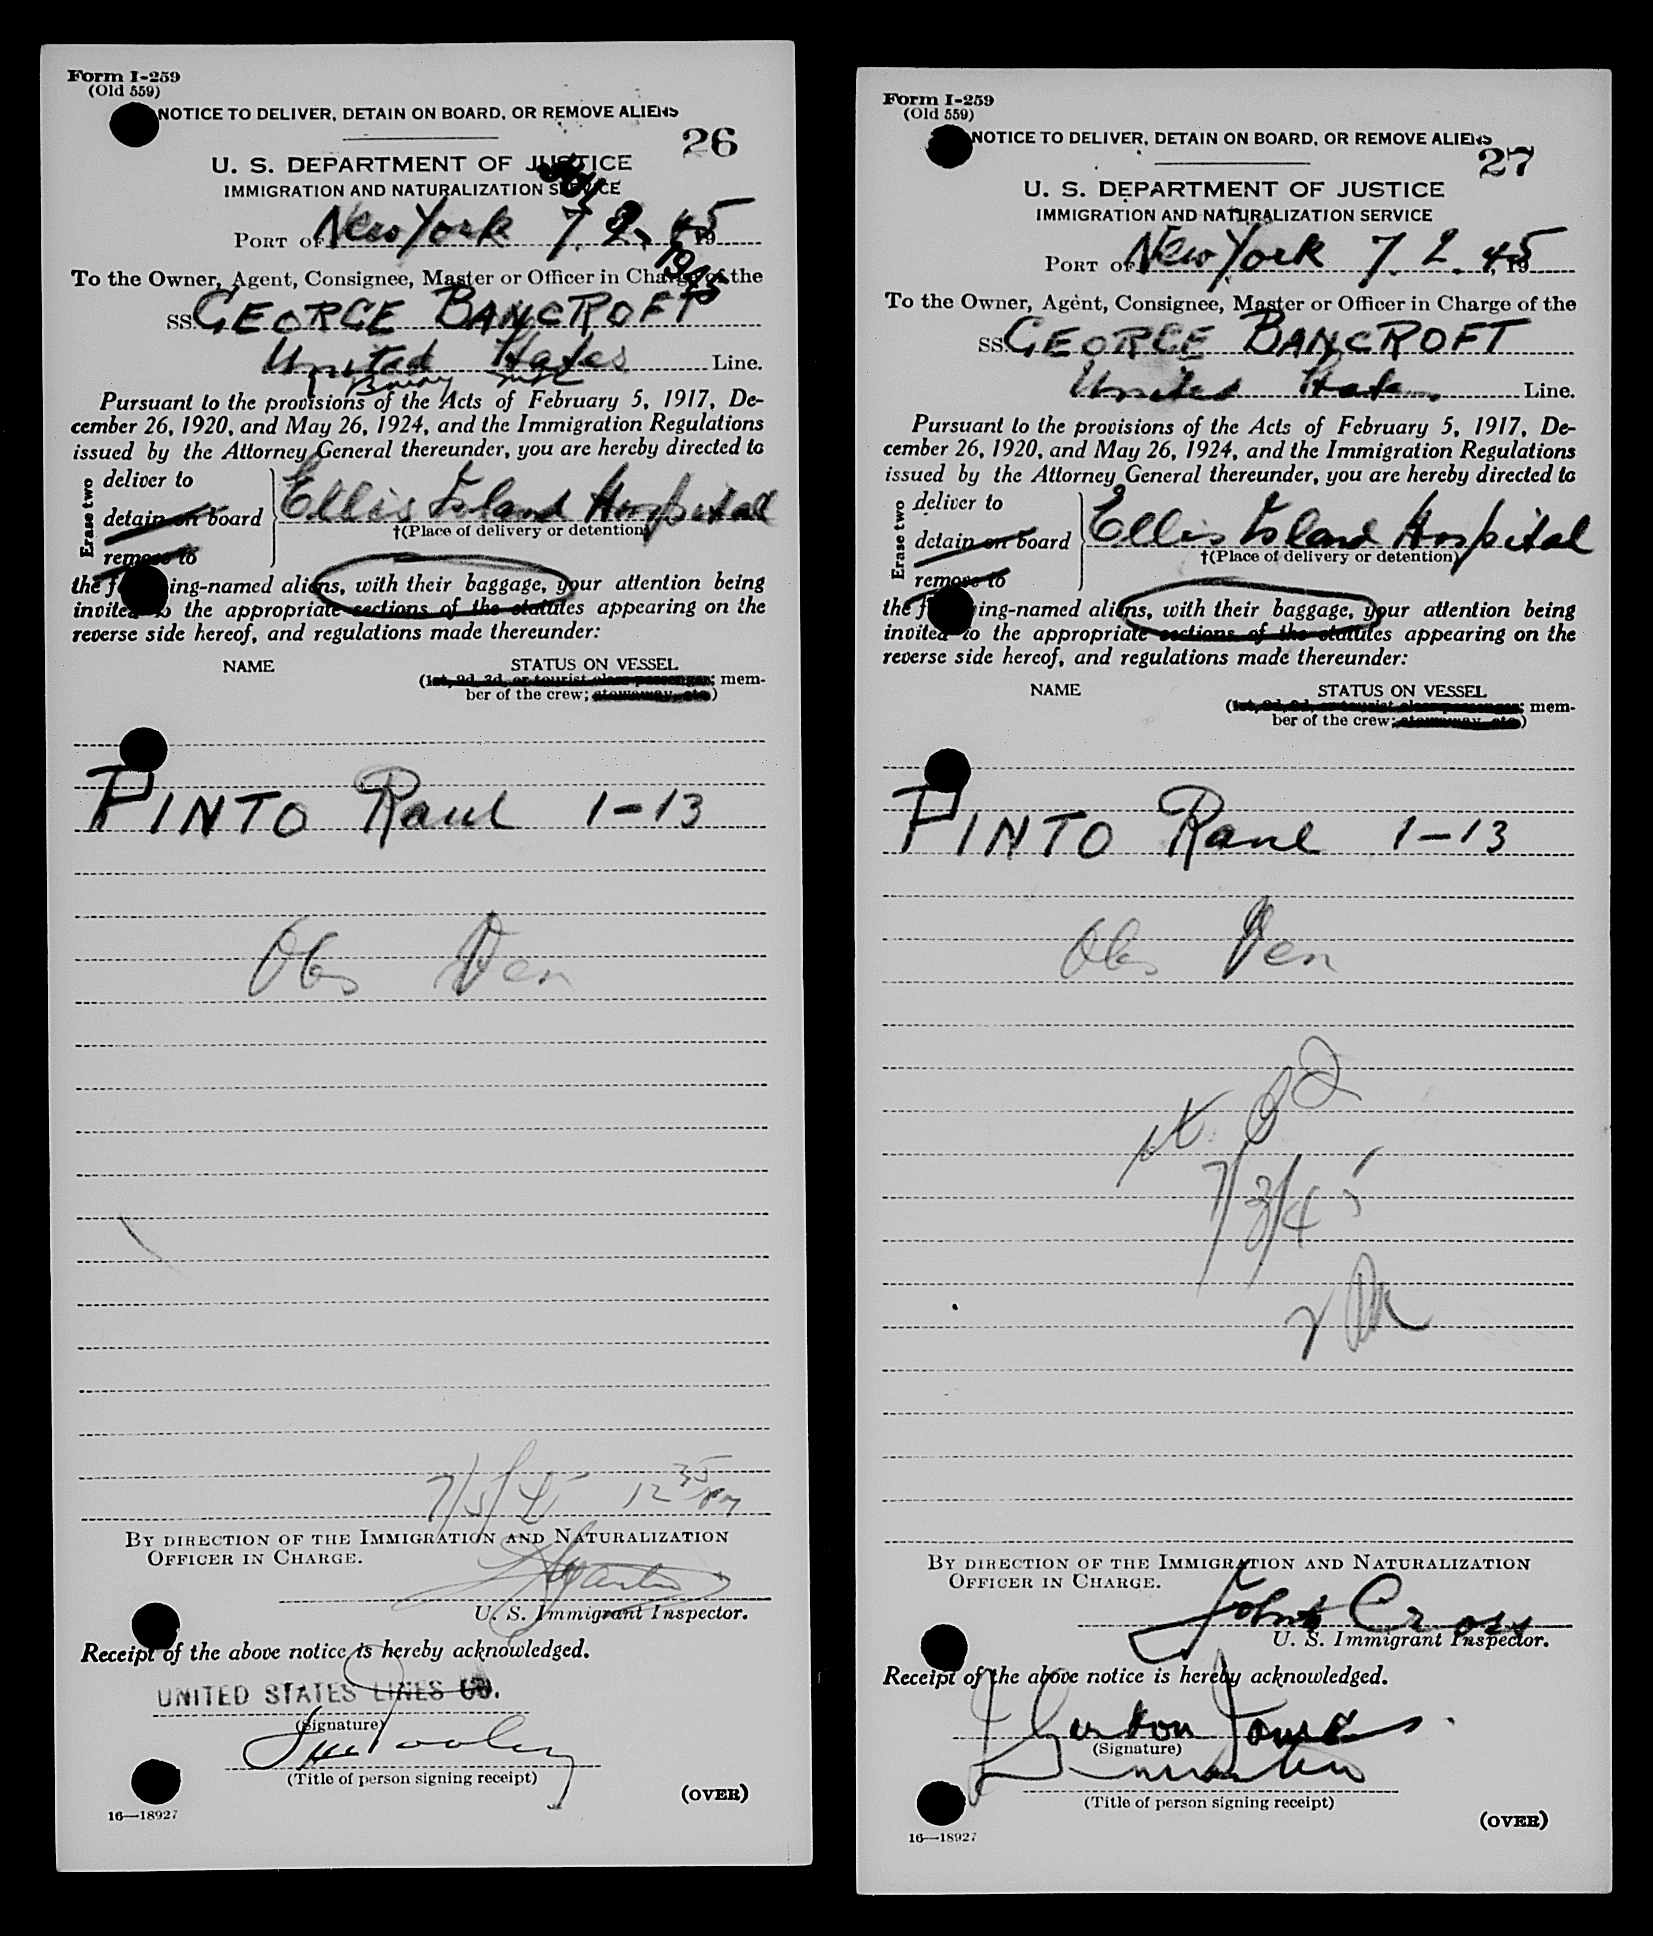 Form I-259
(Old 559)
NOTICE TO DELIVER, DETAIN ON BOARD, OR REMOVE ALIENS
26
U. S. DEPARTMENT OF JUSTICE
IMMIGRATION AND NATURALIZATION SERVICE
PORT OF New York 7. 2. 45, 19
1945
To the Owner, Agent, Consignee, Master or Officer in Charge of the
SS. GEORGE BANCROFT
United States Line.
Pursuant to the provisions of the Acts of February 5, 1917, De-
cember 26, 1920, and May 26, 1924, and the Immigration Regulations
issued by the Attorney General thereunder, you are hereby directed to
Erase two
deliver to
detain on board
remove to
Ellis Island Hospital
†(Place of delivery or detention)
the following-named aliens, with their baggage, your attention being
invited to the appropriate sections of the statutes appearing on the
reverse side hereof, and regulations made thereunder:
NAME STATUS ON VESSEL
(1st, 2d, 3d, or tourist class passenger; mem-
ber of the crew; stowaway, etc.)
PINTO Raul 1-13
Obs Ven
7/5/45 12 35 pm
BY DIRECTION OF THE IMMIGRATION AND NATURALIZATION
OFFICER IN CHARGE.
U. S. Immigrant Inspector.
Receipt of the above notice is hereby acknowledged.
UNITED STATES LINES CO.
(Signature)
(Title of person signing receipt)
(OVER)
16—18927
Form I-259
(Old 559)
NOTICE TO DELIVER, DETAIN ON BOARD, OR REMOVE ALIENS
27
U. S. DEPARTMENT OF JUSTICE
IMMIGRATION AND NATURALIZATION SERVICE
PORT OF New York 7. 2. 45, 19
To the Owner, Agent, Consignee, Master or Officer in Charge of the
SS. GEORGE BANCROFT
United States Line.
Pursuant to the provisions of the Acts of February 5, 1917, De-
cember 26, 1920, and May 26, 1924, and the Immigration Regulations
issued by the Attorney General thereunder, you are hereby directed to
Erase two
deliver to
detain on board
remove to
Ellis Island Hospital
†(Place of delivery or detention)
the following-named aliens, with their baggage, your attention being
invited to the appropriate sections of the statutes appearing on the
reverse side hereof, and regulations made thereunder:
NAME STATUS ON VESSEL
(1st, 2d, 3d, or tourist class passenger; mem-
ber of the crew; stowaway, etc.)
PINTO Raul 1-13
Obs Ven
7/3/45
BY DIRECTION OF THE IMMIGRATION AND NATURALIZATION
OFFICER IN CHARGE.
John Cross
U. S. Immigrant Inspector.
Receipt of the above notice is hereby acknowledged.
(Signature)
(Title of person signing receipt)
(OVER)
16—18927